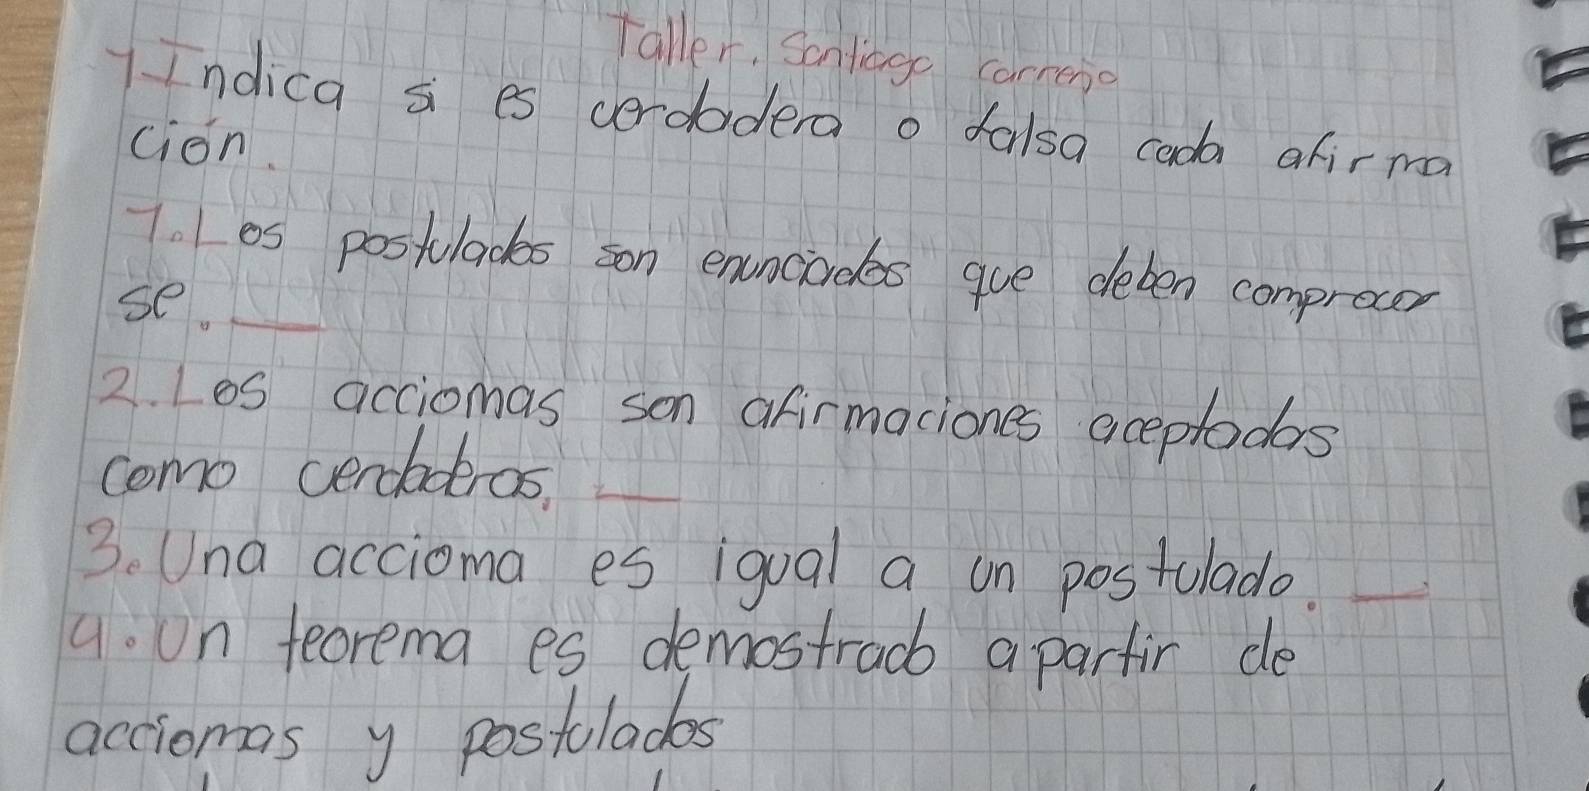 Taller. Santiago Carreño
1 Indica si es verdadera o falsa cada afirma
ción.
1. Los postulados son enunciados que deben comprocar
se. __
2. Los acciomas son afirmaciones aceptadas
como verdaderas. __
3. Una accioma es igual a un postulado. __
4. Un teorema es demostrado apartir de
acciomas y postulados